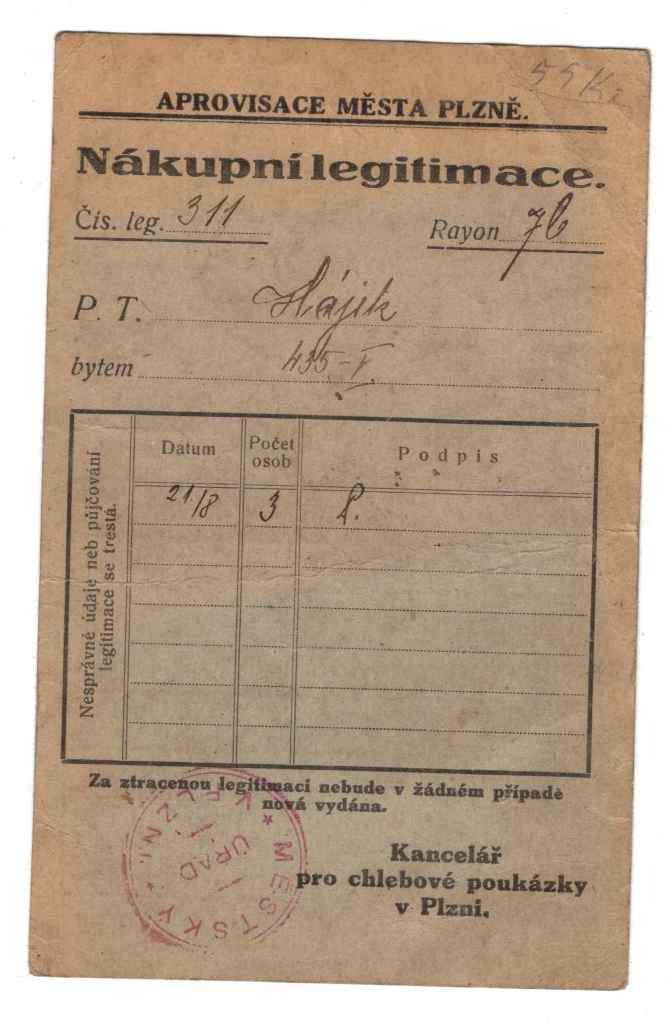 55 K
APROVISACE MĚSTA PLZNĚ.
Nákupní legitimace.
Čís. leg. 311
Rayon
P. T. Hájek
bytem 435-V
Nesprávné údaje neb půjčování
legitimace se trestá.
Datum Počet osob Podpis
21/8 3
Za ztracenou legitimaci nebude v žádném případě
nová vydána.
MĚSTSKÝ ÚŘAD V PLZNI
Kancelář
pro chlebové poukázky
v Plzni.